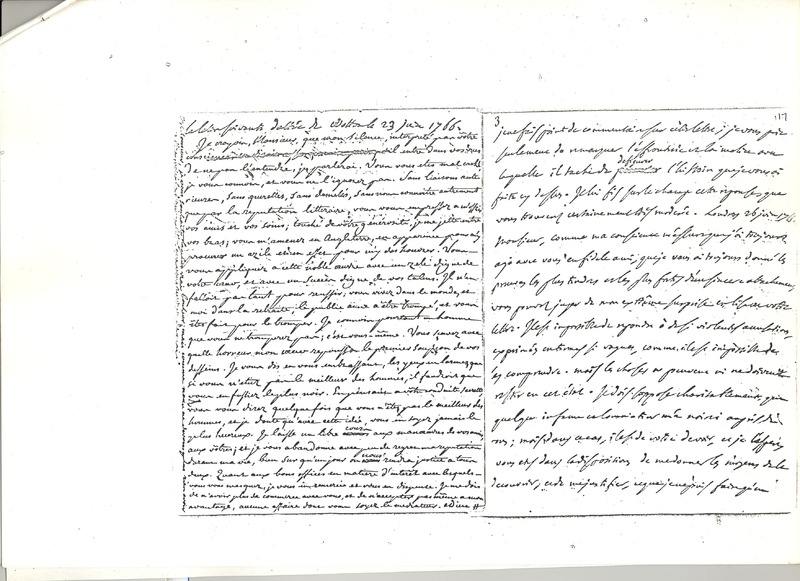 la lettre suivante datée de Wootton le 23 Juin 1766.
Je croyois, Monsieur, que mon silence, interprété par votre
conscience en disoit assez; mais puisqu'il entre dans vos vues
de ne pas l'entendre, je parlerai. Vous vous etes mal caché
je vous connois, et vous ne l'ignorez pas. Sans liaisons anté-
rieures, sans querelles, sans demelés, sans nous connoitre autrement
que par la reputation litteraire, vous vous empressez a m'offrir
vos amis et vos soins; touché de votre générosité, je me jette entre
vos bras; vous m'amenez en Angleterre, en apparence pour m'y
procurer un azile et en effet pour m'y des honorer. Vous
vous appliquez a cette noble œuvre avec un zele digne de
votre cœur, et avec un succes digne de vos talens. Il n'en
falloit pas tant pour reussir; vous vivez dans le monde, et
moi dans la retraite; le public aime a être trompé, et vous
êtes fait pour le tromper. Je connois pourtant un homme
que vous ne tromperez pas; c'est vous-même. Vous savez avec
quelle horreur mon cœur repoussa le premier soupçon de vos
desseins. Je vous dis en vous embrassant, les yeux en larmes, que
si vous n'étiez pas le meilleur des hommes, il faudroit que
vous en fussiez le plus noir. En pensant a votre conduite secrette
vous vous direz quelque fois que vous n'êtes pas le meilleur des
hommes, et je doute qu'avec cette idée, vous en soyez jamais le
plus heureux. Je laisse un libre cours aux manœuvres de vos amis,
aux votres; et je vous abandonne avec peu de regret ma reputation
durant ma vie, bien sur qu'un jour on nous rendra justice a tous
deux. Quant aux bons offices en matiere d'interêt avec lesquels
vous vous masquez, je vous en remercie et vous en dispense. Je me dois
de n'avoir plus de commerce avec vous, et de n'accepter pas même a mon
avantage, aucune affaire dont vous soyez le mediateur. adieu
3 117
je ne fais point de commentaire sur cette lettre, je vous prie
seulement de remarquer
laquelle il tache de defigurer l'histoire que je vous ai
faite cy dessus. Je lui fis sur le champ cette reponse que
vous trouverez certainement très modérée. Londres 26 juin 1766.
Monsieur, comme ma conscience m'assure que j'ai toujours
agi avec vous en fidele ami, que je vous ai toujours donné les
preuves les plus tendres et les plus fortes d'une sincere attachement,
vous pouvez juger de mon extrême surprise en lisant votre
lettre. Il est impossible de repondre à de si violentes accusations,
exprimées en termes si vagues, comme il est impossible de
les comprendre. mais les choses ne peuvent ni ne doivent
rester en cet état. Je dois supposer charitablement que
quelque infame calomniateur m'a noirci auprès de
vous; mais dans ce cas, il est de votre devoir, et je l'espere,
vous etes dans les dispositions de me donner les moyens de le
decouvrir, et de me justifier, ce que je ne puis faire qu'en